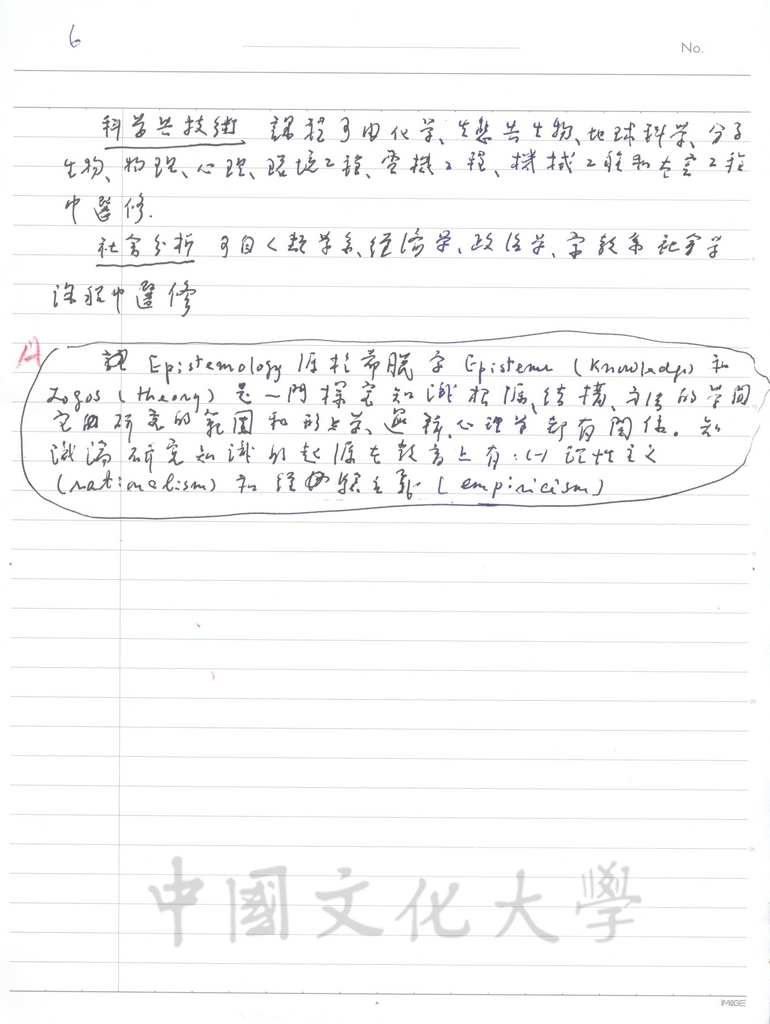 6
No.
科学与技術 課程可由化学、生態与生物、地球科学、分子
生物、物理、心理、環境工程、電機工程、機械工程和太空工程
中選修.
社会分析 可自人類学系、經濟学、政治学、宗教系社会学
課程中選修
A
Epistemology 源於希臘字 Episteme (Knowledge) 和
Logos (theory) 是一門探究知識根源、結構、方法的学問
它的研究的範圍和形上学、邏輯、心理学都有関係。知
識論研究知識的起源在教育上有:(一)理性主义
(rationalism) 和經驗主義 (empiricism)
中國文化大學
IMAGE